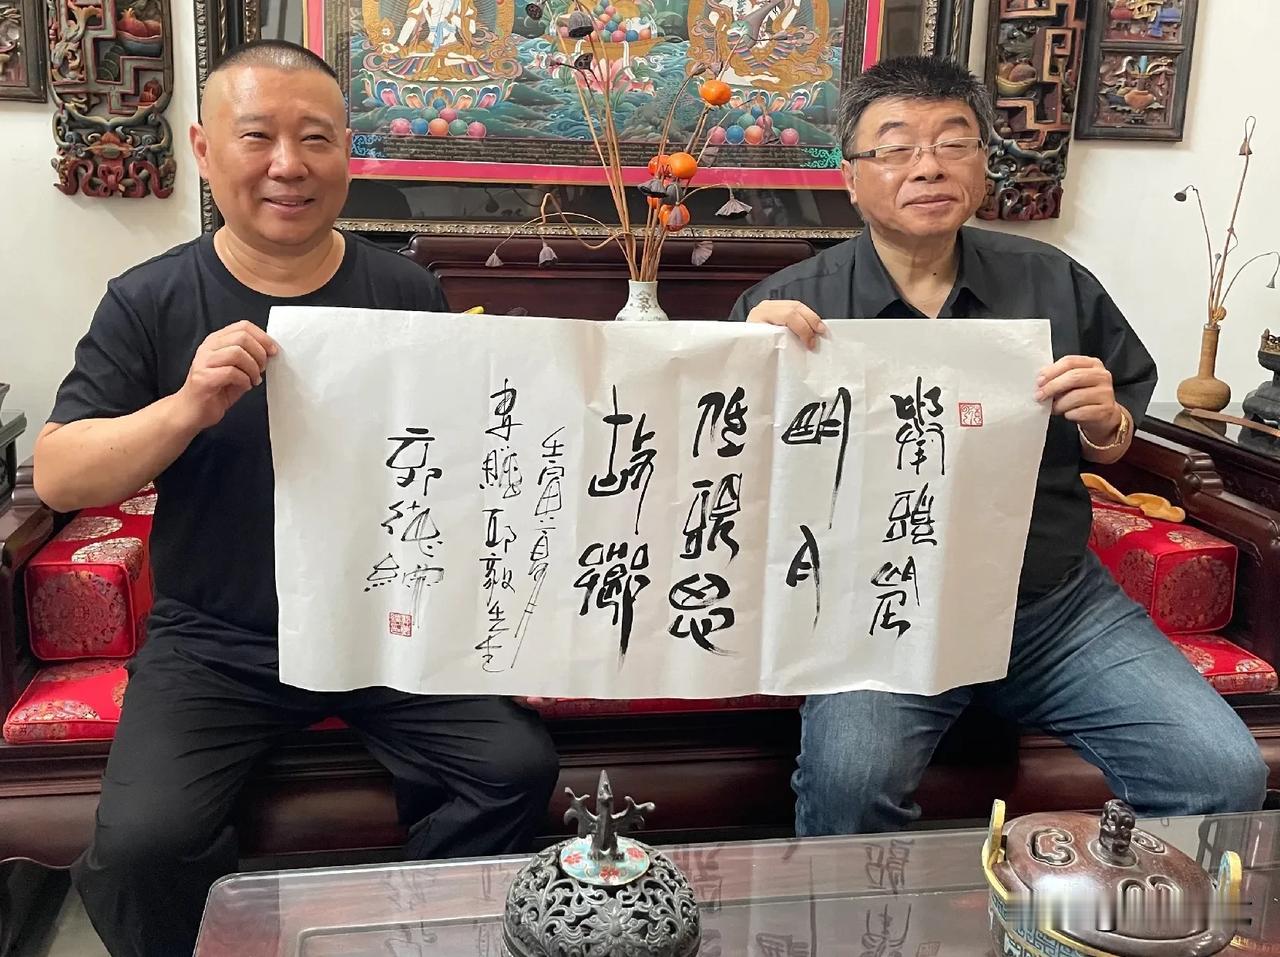 舉頭望
明月
低頭思
故鄉
壬寅六月
書贈邱毅先生
郭德綱